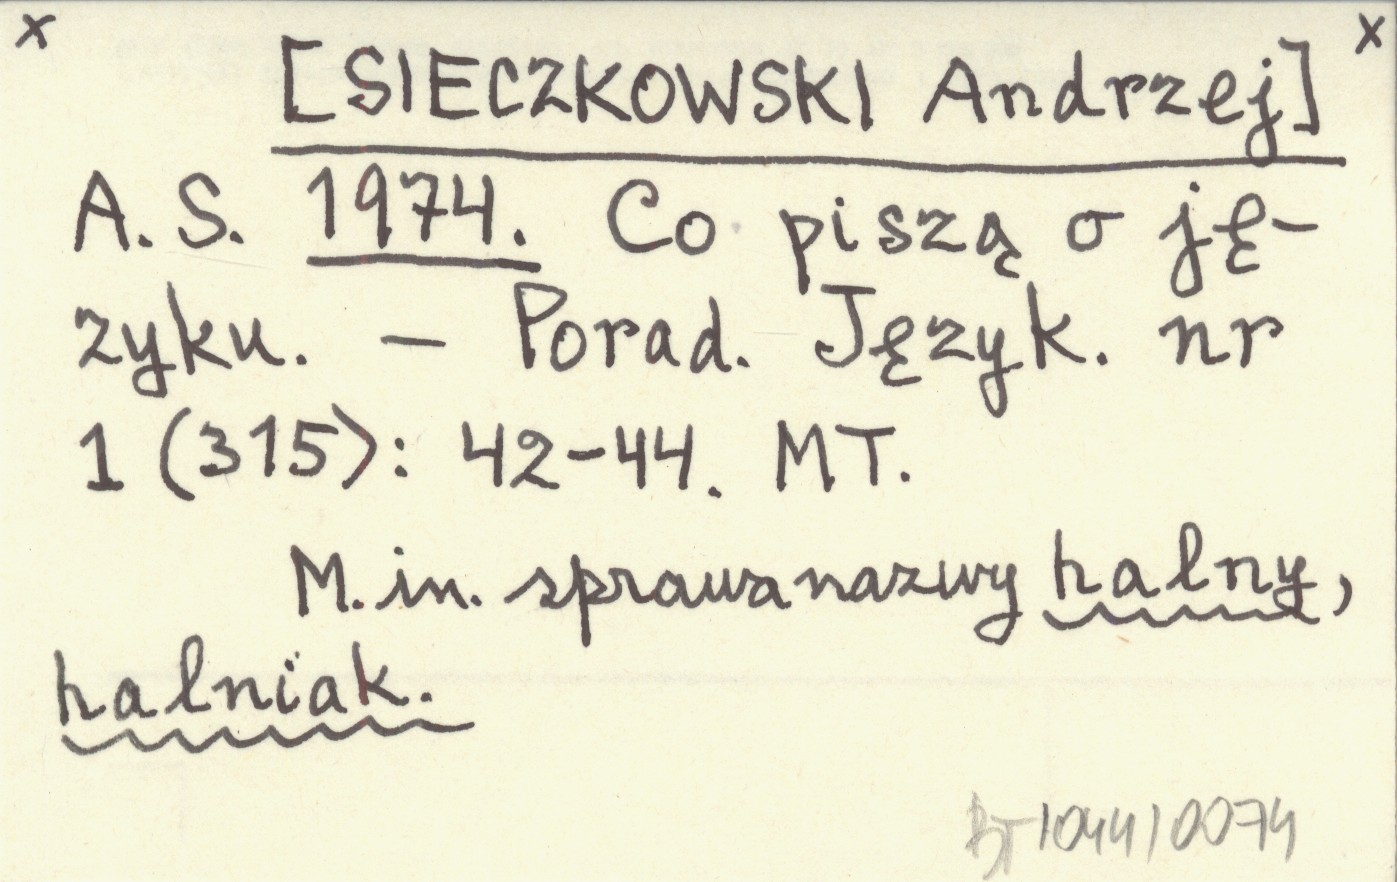 x x
[SIECZKOWSKI Andrzej]
A. S. 1974. Co piszą o ję-
zyku. – Porad. Język. nr
1 (315): 42-44. MT.
M. in. sprawa nazwy halny,
halniak.
BT 1044/0074